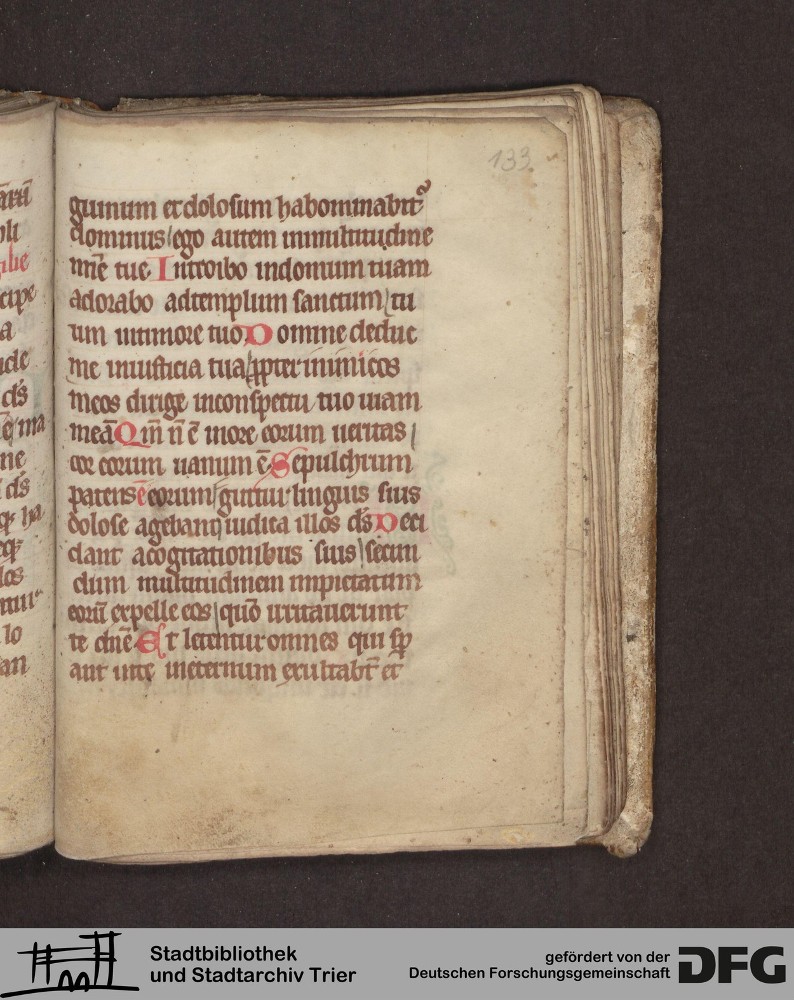 133
guinum et dolosum habominabit᷑
dominus / ego autem in multitudine
mīe tue. Introibo indomum tuam
adorabo adtemplum sanctum / tu
um in timore tuo Domine deduc
me iniusticia tua / ꝓpter inimicos
meos dirige inconspectu tuo uiam
meā Qm̄ n̄ ē inore eorum ueritas /
cor eorum uanum ē Sepulchrum
patens ē eorum / guttur linguis suis
dolose agebant / iudica illos ds̄ Deci
dant acogitationibus suis / secun
dum multitudinem impietatum
eorū expelle eos / quō irritauerunt
te dn̄e Et letentur omnes qui sꝑ
ant inte ineternum exultabt̄ et
Stadtbibliothek
und Stadtarchiv Trier
gefördert von der
Deutschen Forschungsgemeinschaft
DFG